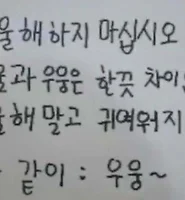 해하지 마십시오
과 우웅은 한끗 차이
해 말고 귀여워지
같이 : 우웅~